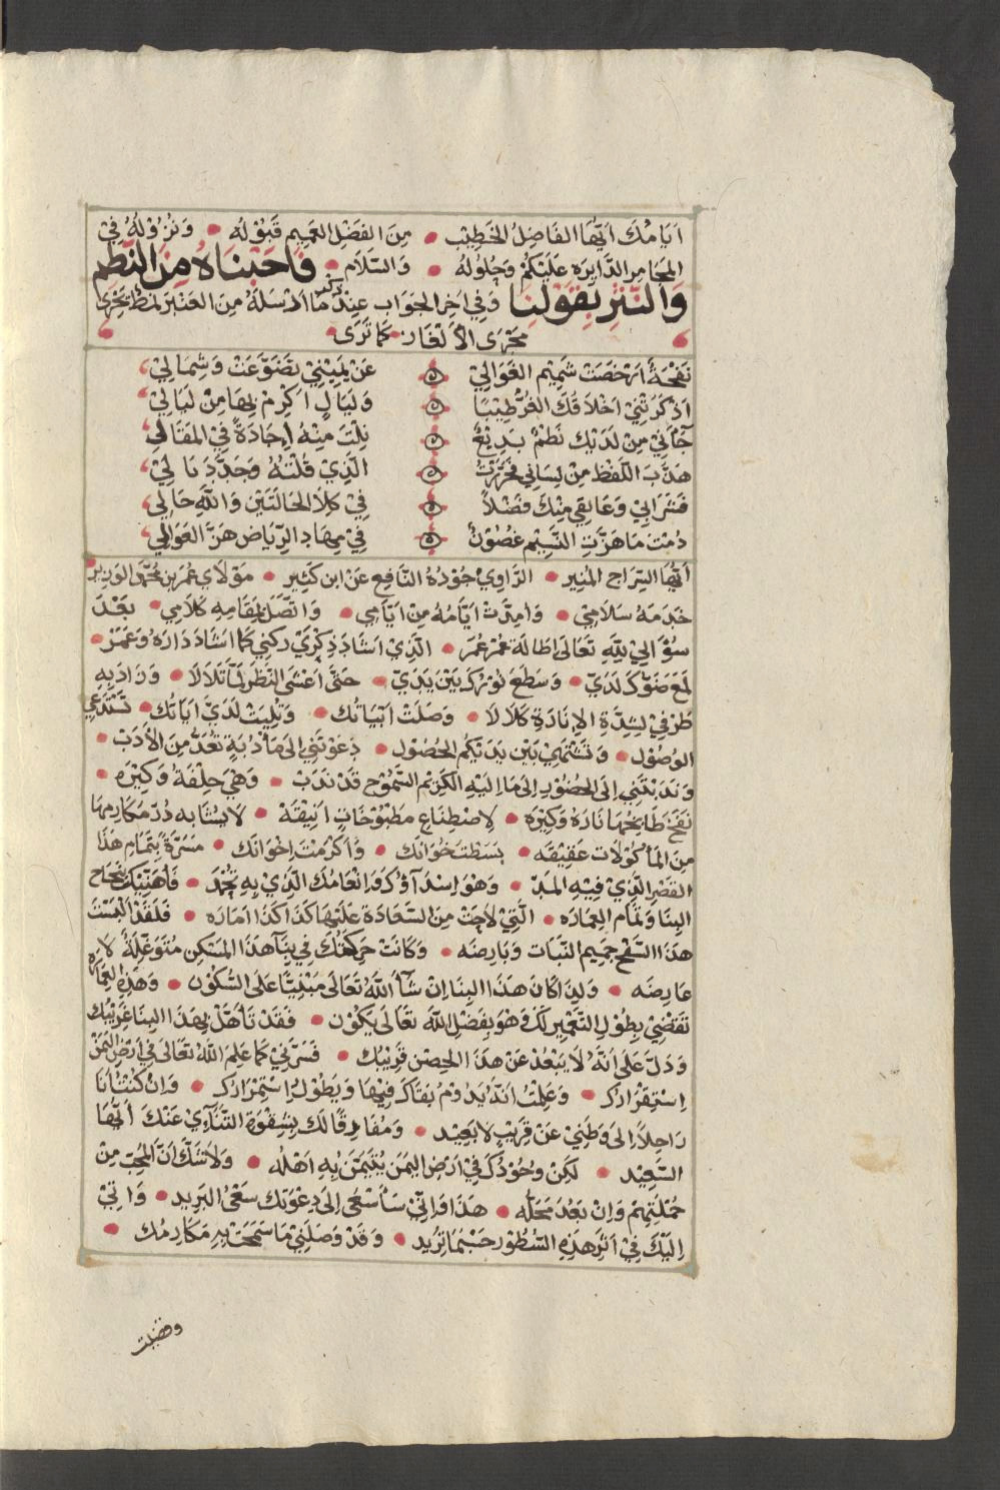 ايامك ايها الفاضل الخطيب • من الفضل العميم قبوله • ونزوله في
المجامر الدايرة عليكم وحلوله • والسلام • فاجبناه من النظم
والنثر بقولنا وفي اخر الجواب عند ذكر ما ارسله من العنبر نمط يجرى
مجرى الالغاز • كما ترى •
نفحة ارخصت شميم الغوالي ۞ عن يميني تضوعت وشمالي
اذكرتني اخلاقك الغر طيبا ۞ وليال اكرم بها من ليالي
جاني من لديك نظم بديع ۞ نلت منه اجادة في المقال
هذب اللفظ من لساني فحررت ۞ الذي قلته وجدد بالي
فشرابي وعابقي منك فضلا ۞ في كلا الحالتين والله حالي
دمت ما هزت النسيم غصون ۞ في مهاد الرياض هز العوالي
ايها السراج المنير • الراوي جوده النافع عن ابن كثير • مولاي عمر بن محمد الوزير
خدمه سلامي • وامدت ايامه من ايامي • واتصل بمقامه كلامي • بعد
سؤالي لله تعالى اطالة عمر عمر • الذي اشاد ذكري ركني كما اشاد داره وعمر •
لمع ضوءك لدي • وسطع نورك بين يدي • حتى اعشى النظر لما تلالا • وزاد به
طرفي لشدة الانارة كلالا • وصلت ابياتك • وتليت لدي اياتك • تستدعي
الوصول • وتشتهي بين يديكم الحصول • دعوتني الى مأدبة تعد من الأدب •
وندبتني الى الحضور الى ما اليه الكريم السموح قد ندب • وهي حلفة وكيره •
نفخ طابخها ناره وكيره • لاصطناع مطبوخات انيقة • لا يشابه در مكارمها
من المأكولات عقيقه • بسطت خوانك • واكرمت اخوانك • مسرة بتمام هذا
القصر الذي فيه المد • وهو اسداؤك وانعامك الذي به نحمد • فاهنيك بنجاح
البنا وتمام العماره • التي لاحت من السعادة عليها كذا كذا اماره • فلقد البست
هذا السفح جميم النبات وبارضه • وكانت حركتك في بناء هذا المسكن متوغلة لا
عارضه • ولين كان هذا البنا ان شاء الله تعالى مبنيا على السكون • وهذه العماره
تقضي بطول التعمير لك وهو بفضل الله تعالى يكون • فقد تأهل بهذا البنا غريبك
ودل على انه لا يبعد عن هذا الحصن قريبك • فسرني كما علم الله تعالى في ارض اليمن
استقرارك • وعلمت انه يدوم بقاك فيها ويطول استمرارك • وان كنت انا
راحلا الى وطني عن قريب لا بعيد • ومفارقا لك بشقوة التنائي عنك ايها
السعيد • لكن وجودك في ارض اليمن يتيمن به اهله • ولا شك ان المحب من
جملتهم وان بعد محله • هذا واني ساسعى الى دعوتك سعي البريد • واتي
اليك في اثر هذه السطور حسبما تريد • وقد وصلني ما سمحت به مكارمك •
وفضلت